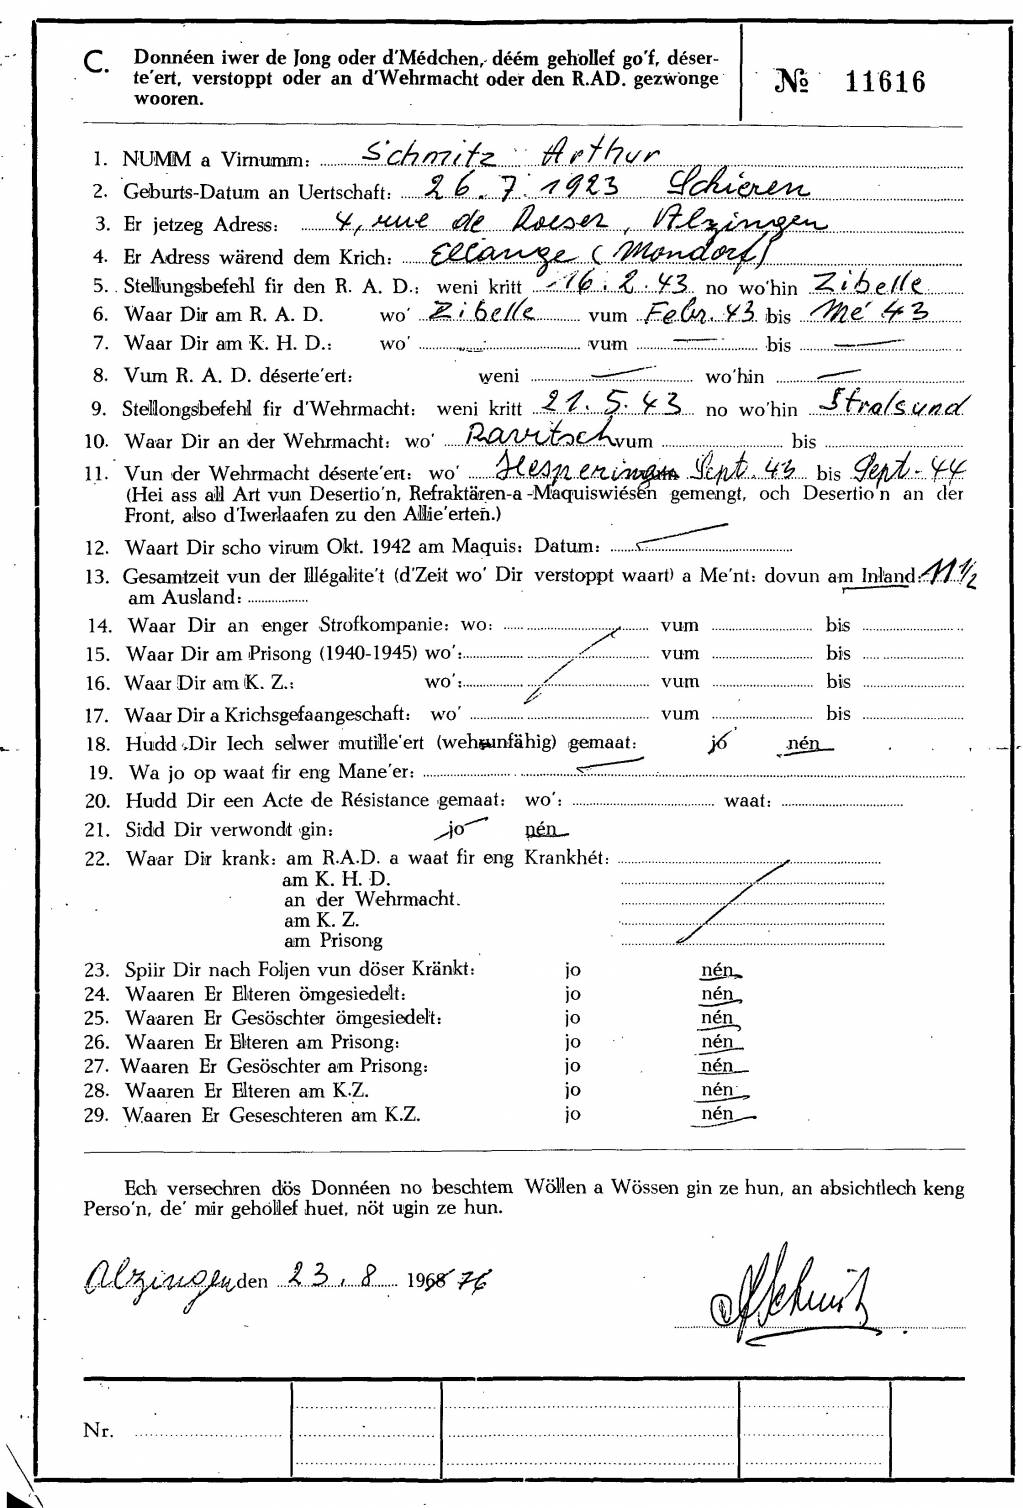 C. Donnéen iwer de Jong oder d'Médchen, déém gehollef go'f, déser-
te'ert, verstoppt oder an d'Wehrmacht oder den R.AD. gezwonge
wooren.
№ 11616
1. NUMM a Virnumm: Schmitz Arthur
2. Geburts-Datum an Uertschaft: 26.7.1923 Schieren
3. Er jetzeg Adress: 4, rue de Roeser, Alzingen
4. Er Adress wärend dem Krich: Ellange (Mondorf)
5. Stellungsbefehl fir den R. A. D.: weni kritt 16.2.43 no wo'hin Zibelle
6. Waar Dir am R. A. D. wo' Zibelle vum Febr. 43 bis Mé 43
7. Waar Dir am K. H. D.: wo' vum bis
8. Vum R. A. D. déserte'ert: weni wo'hin
9. Stellongsbefehl fir d'Wehrmacht: weni kritt 21.5.43 no wo'hin Stralsund
10. Waar Dir an der Wehrmacht: wo' Ravitsch vum bis
11. Vun der Wehrmacht déserte'ert: wo' Hesperingen Sept. 43 bis Sept-44
(Hei ass all Art vun Desertio'n, Refraktären-a-Maquiswiésen gemengt, och Desertio'n an der
Front, also d'Iwerlaafen zu den Allie'erten.)
12. Waart Dir scho virum Okt. 1942 am Maquis: Datum:
13. Gesamtzeit vun der Illégalite't (d'Zeit wo' Dir verstoppt waart) a Me'nt: dovun am Inland: 11 1/2
am Ausland:
14. Waar Dir an enger Strofkompanie: wo: vum bis
15. Waar Dir am Prisong (1940-1945) wo': vum bis
16. Waar Dir am K. Z.: wo': vum bis
17. Waar Dir a Krichsgefaangeschaft: wo' vum bis
18. Hudd Dir Iech selwer mutille'ert (wehrunfähig) gemaat: jó nén
19. Wa jo op waat fir eng Mane'er:
20. Hudd Dir een Acte de Résistance gemaat: wo': waat:
21. Sidd Dir verwondt gin: jo nén
22. Waar Dir krank: am R.A.D. a waat fir eng Krankhét:
am K. H. D.
an der Wehrmacht.
am K. Z.
am Prisong
23. Spiir Dir nach Foljen vun döser Kränkt: jo nén
24. Waaren Er Elteren ömgesiedelt: jo nén
25. Waaren Er Gesöschter ömgesiedelt: jo nén
26. Waaren Er Elteren am Prisong: jo nén
27. Waaren Er Gesöschter am Prisong: jo nén
28. Waaren Er Elteren am K.Z. jo nén
29. Waaren Er Geseschteren am K.Z. jo nén
Ech versechren dös Donnéen no beschtem Wöllen a Wössen gin ze hun, an absichtlech keng
Perso'n, de' mir gehollef huet, nöt ugin ze hun.
Alzingen den 23.8 1968 76
A Schmitz
Nr.